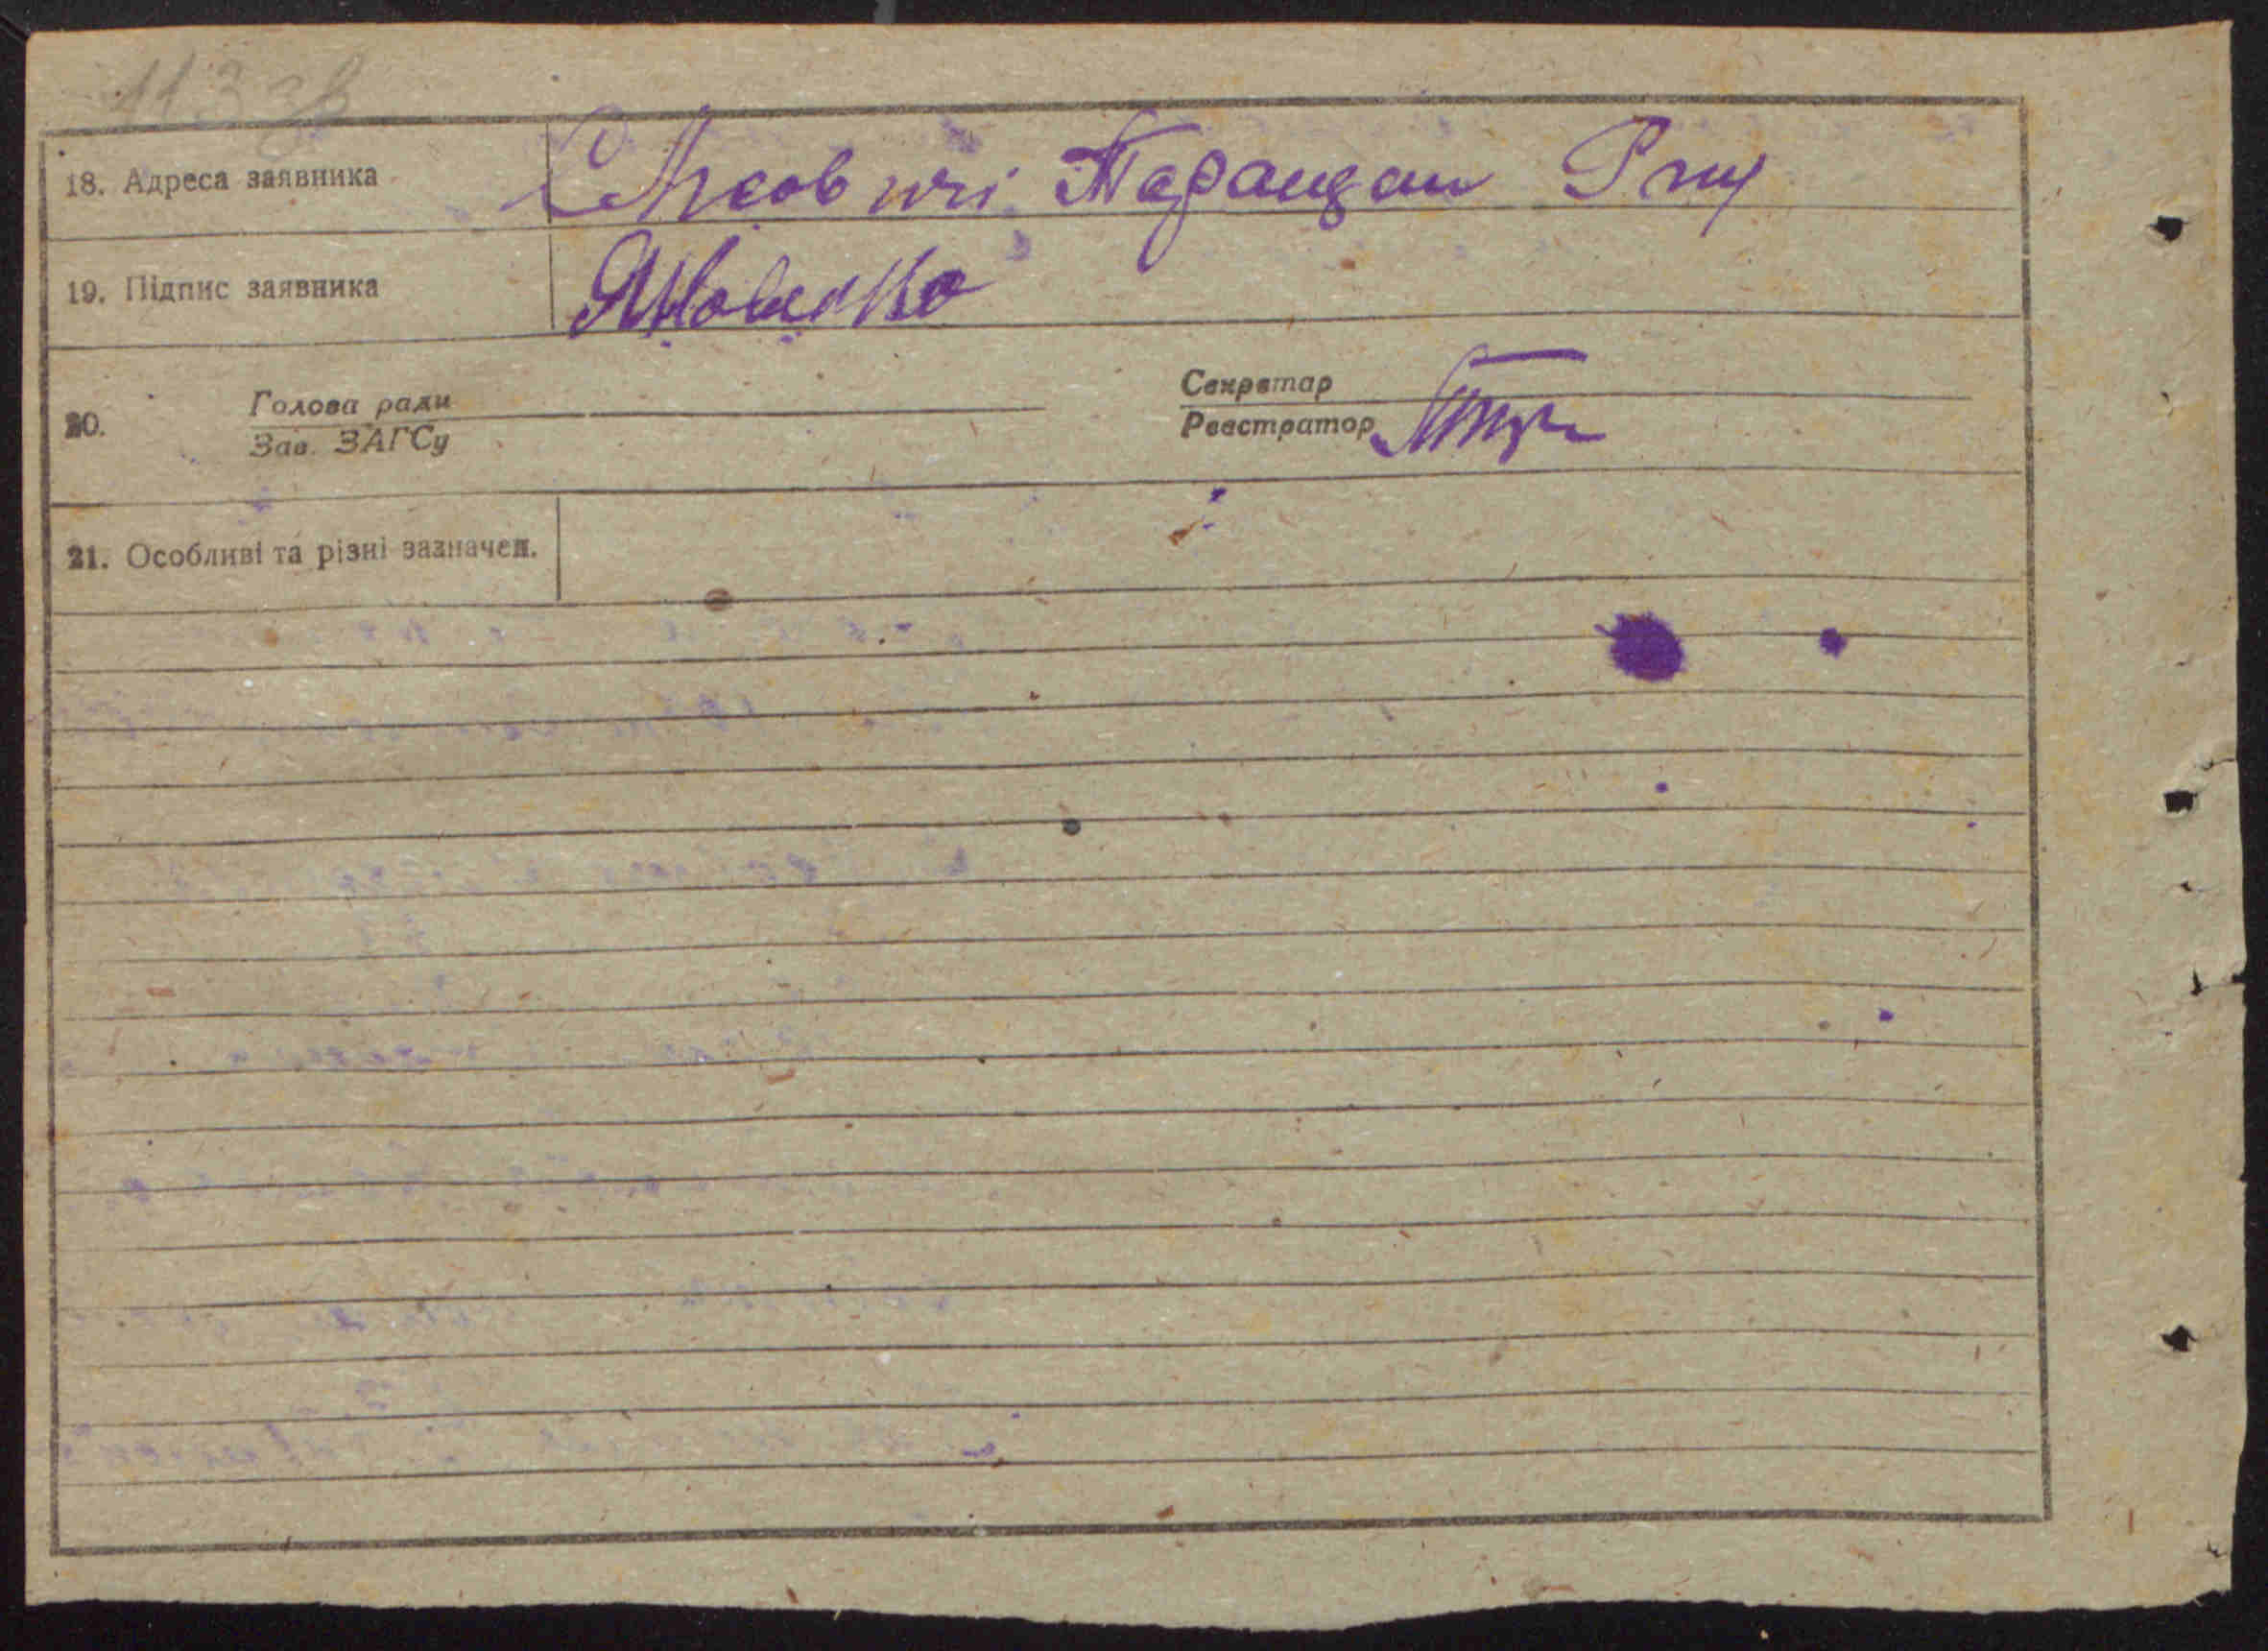 113 зв
18. Адреса заявника с. Лісовичі Таращан Р-ну
19. Підпис заявника Яковенко
20. Голова ради Секретар
Зав. ЗАГСу Реєстратор
21. Особливі та різні зазначен.